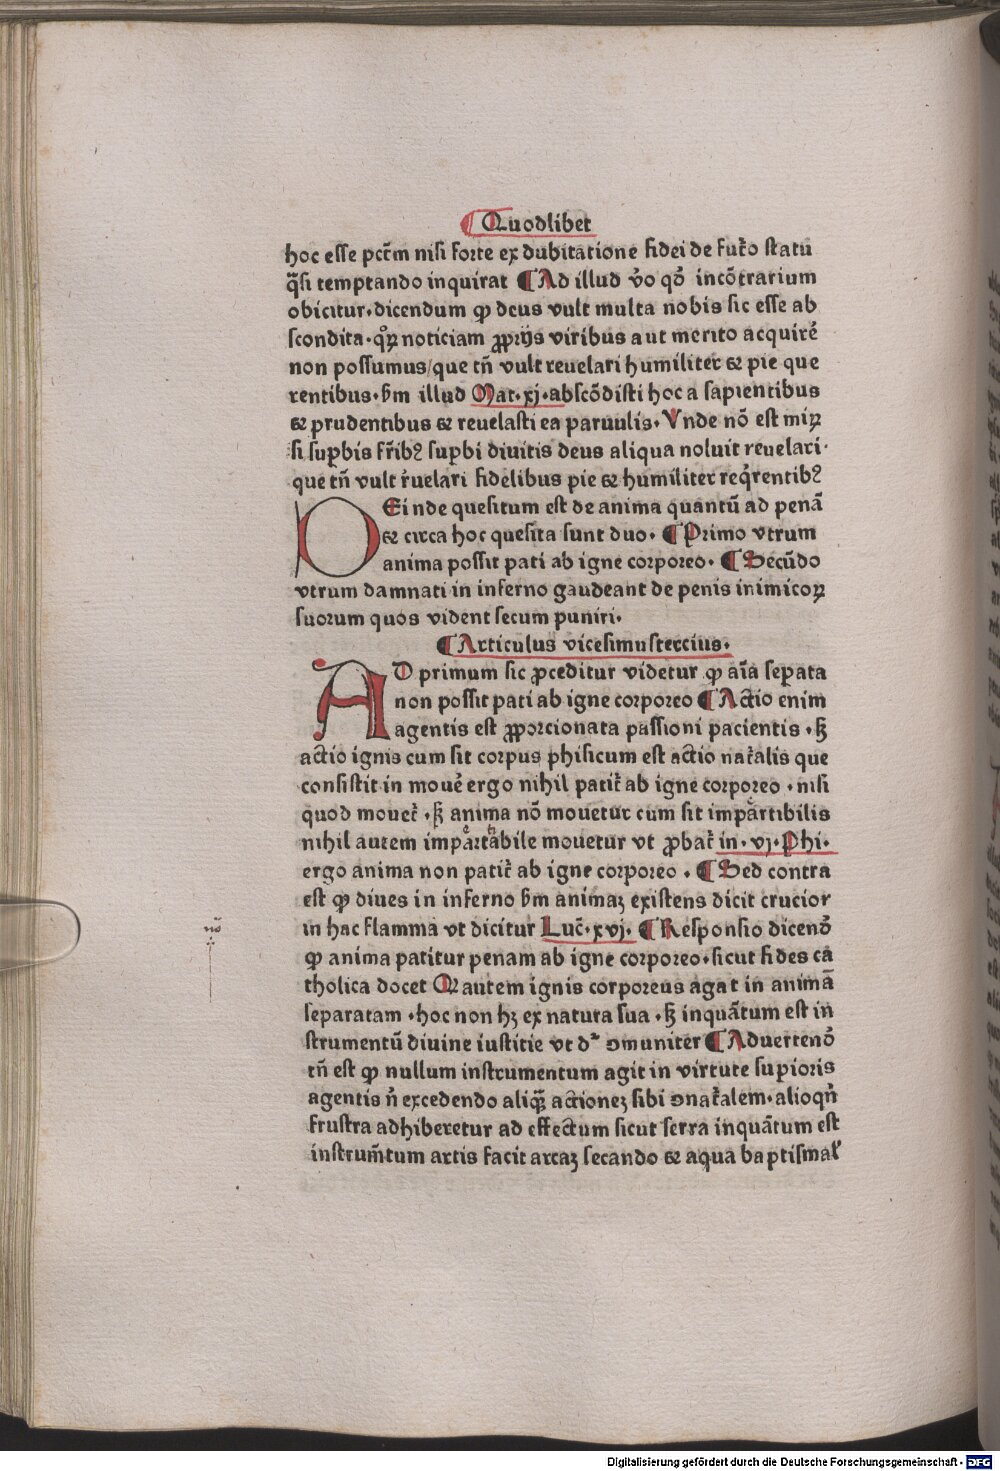 ¶Quodlibet
hoc esse pctm̄ nisi forte ex dubitatione fidei de futo᷑ statu
q̄si temptando inquirat ¶Ad illud v̾o qd̾ incōtrarium
obicitur.dicendum ꝙ deus vult multa nobis sic esse ab
scondita.qꝝ noticiam ꝓprijs viribus aut merito acquire᷑
non possumus/que tn̄ vult reuelari humiliter ⁊ pie que
rentibus.ẜm illud Mat.xj.abscōdisti hoc a sapientibus
⁊ prudentibus ⁊ reuelasti ea paruulis.Vnde nō est miꝝ
si suꝑbis fr̄ibꝰ suꝑbi diuitis deus aliqua noluit reuelari.
que tn̄ vult r̾uelari fidelibus pie ⁊ humiliter req̄rentibꝰ
DEinde quesitum est de anima quantū ad penā
⁊ circa hoc quesita sunt duo. ¶Primo vtrum
anima possit pati ab igne corporeo. ¶Secūdo
vtrum damnati in inferno gaudeant de penis inimicoꝝ
suorum quos vident secum puniri.
¶Articulus vicesimustercius.
AD primum sic ꝓceditur videtur ꝙ aīa seꝑata
non possit pati ab igne corporeo ¶Actio enim
agentis est ꝓporcionata passioni pacientis .ꝫ
actio ignis cum sit corpus phisicum est actio nat᷑alis que
consistit in moue᷑ ergo nihil patit᷑ ab igne corporeo . nisi
quod mouet᷑ .ꝫ anima nō mouetur cum sit impartibilis
nihil autem impartabile mouetur vt ꝓbat᷑ in. vj.Phi.
ergo anima non patit᷑ ab igne corporeo . ¶Sed contra
est ꝙ diues in inferno ẜm animaꝫ existens dicit crucior
in hac flamma vt dicitur Luc̄.xvj. ¶Responsio dicend̾
nō
ꝙ anima patitur penam ab igne corporeo.sicut fides ca
tholica docet Q autem ignis corporeus agat in animā
separatam .hoc non hꝫ ex natura sua .ꝫ inquātum est in
strumentū diuine iustitie vt dr̄ ꝯmuniter ¶Aduertend̾
tn̄ est ꝙ nullum instrumentum agit in virtute suꝑioris
agentis n̄ excedendo aliq̄ꝫ actioneꝫ sibi ꝯnat᷑alem.alioqn̄
frustra adhiberetur ad effectum sicut serra inquātum est
instrum̄tum artis facit arcaꝫ secando ⁊ aqua baptismal̾